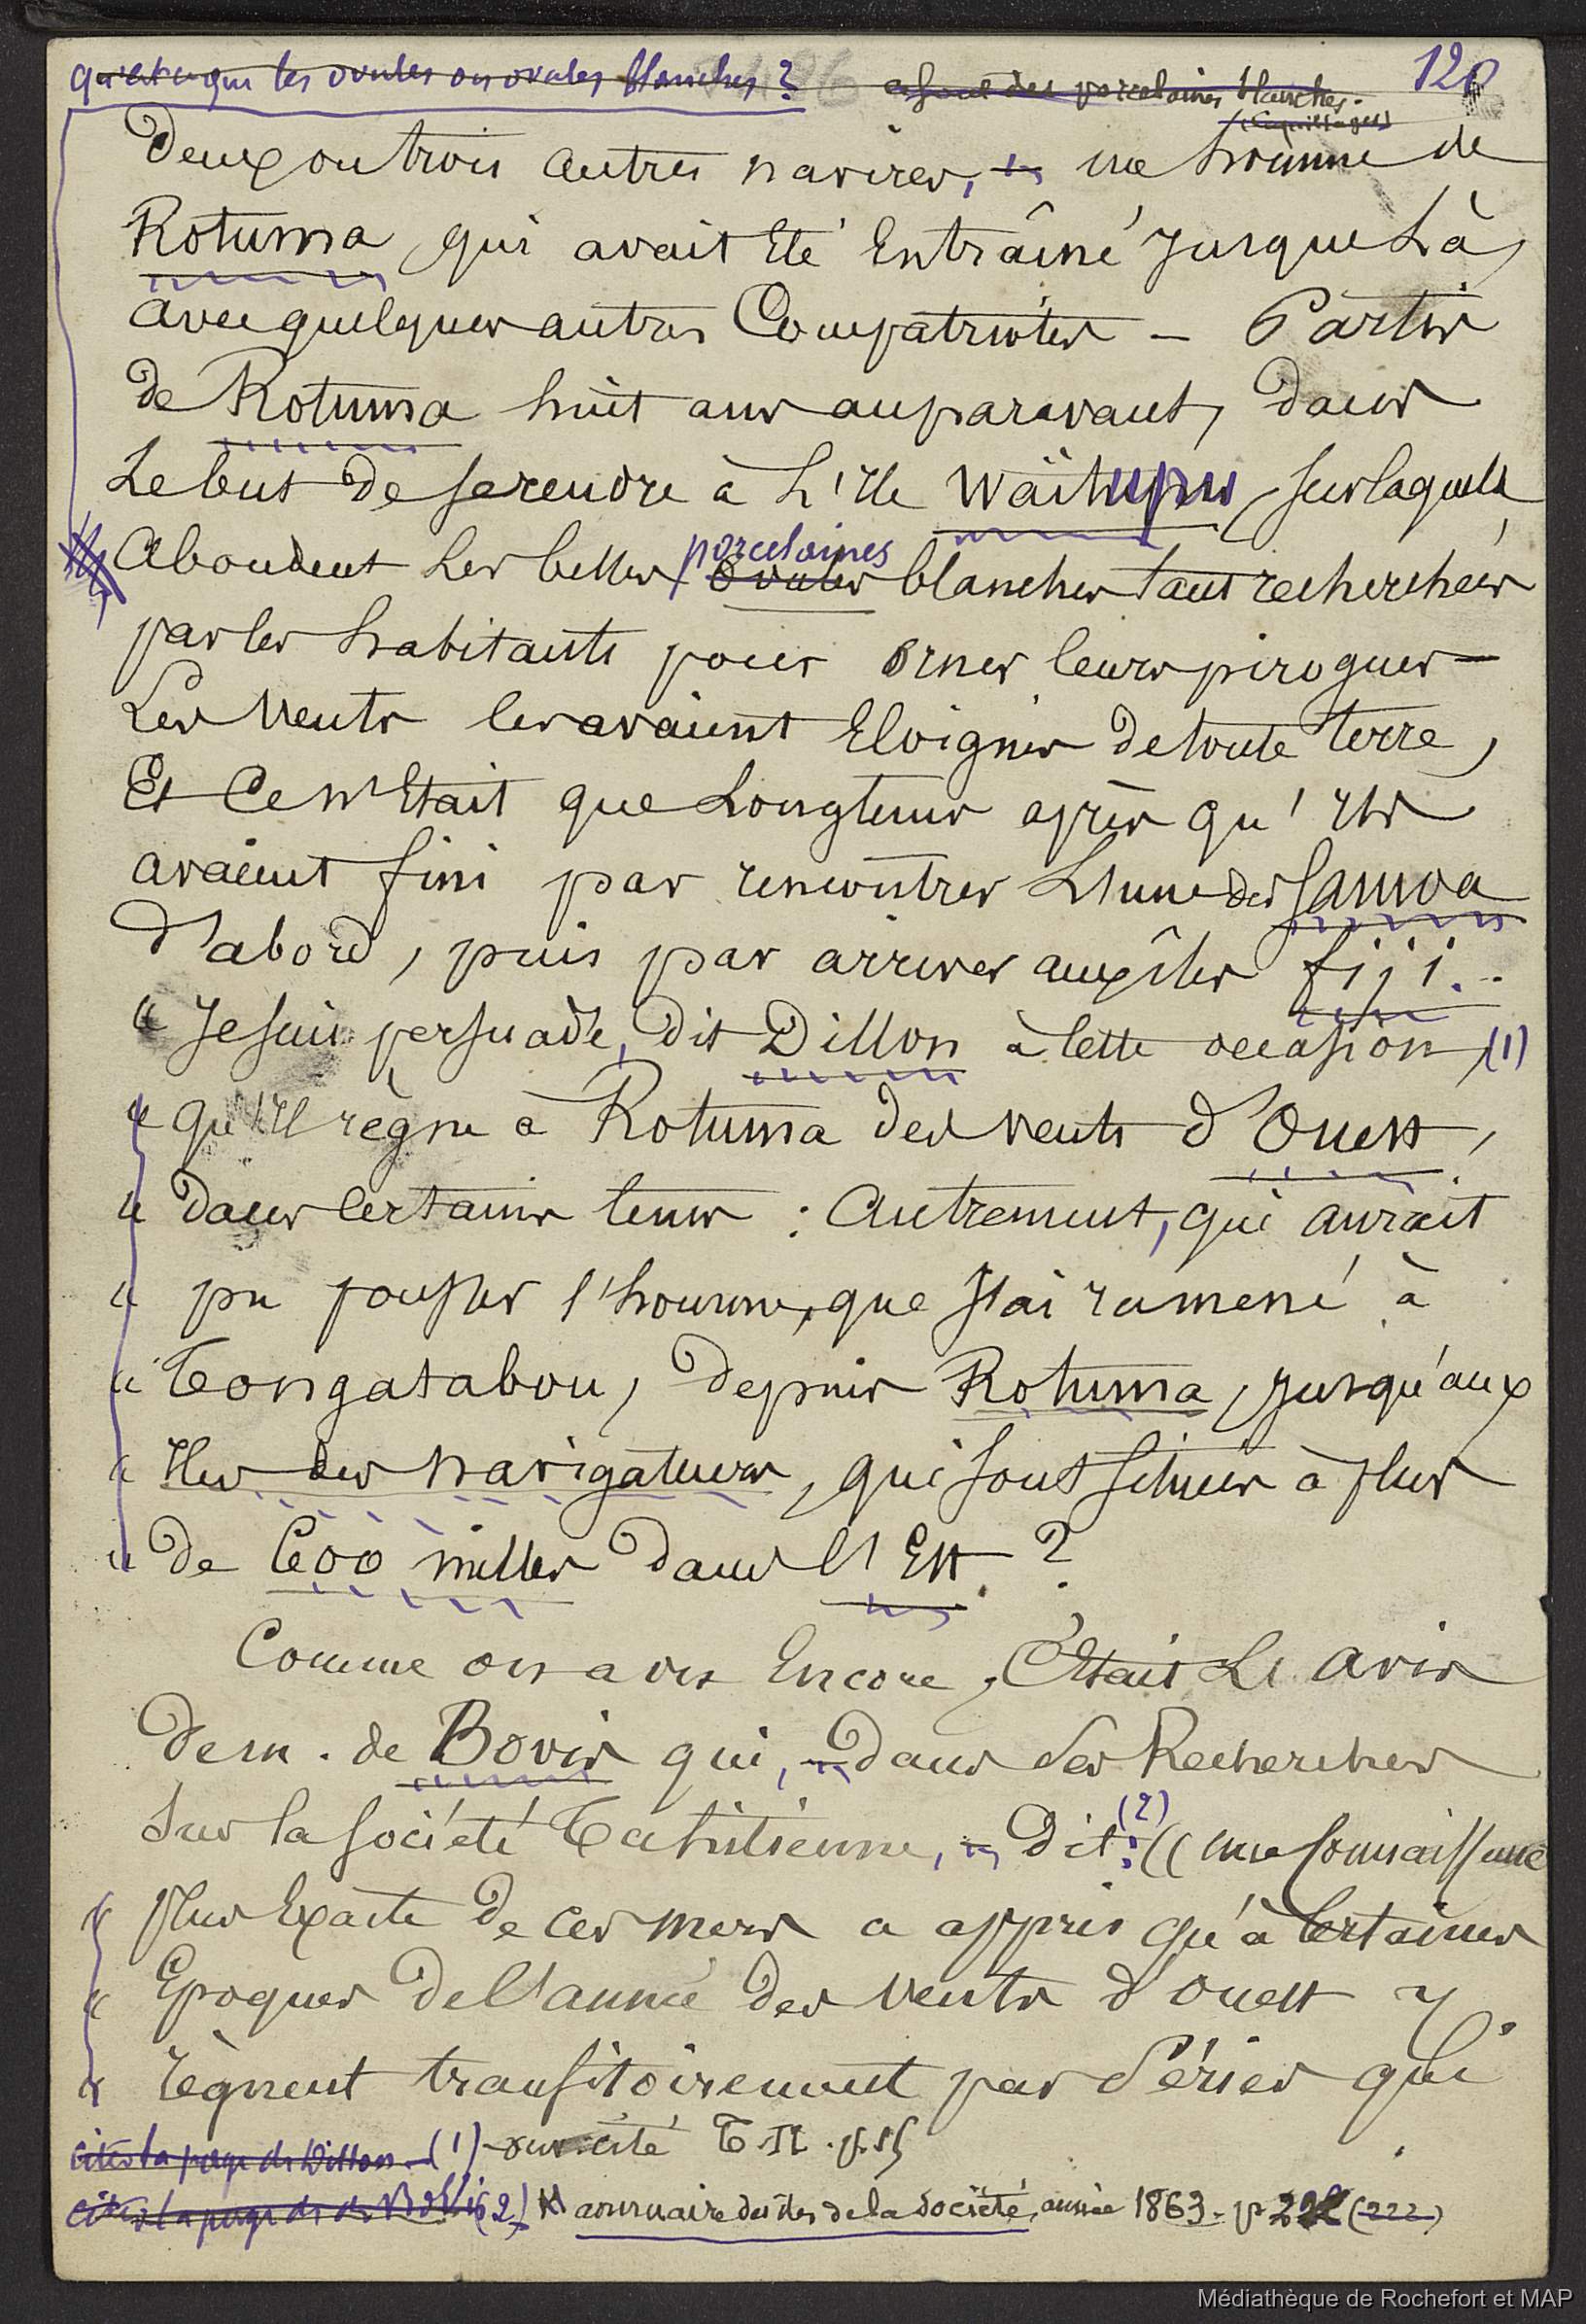 qu'est-ce que les ovules ou ovules blanches ?
ce sont des porcelaines blanches.
(Coquillages)
120
Deux ou trois autres navires, un homme de
Rotuma, qui avait Eté Entraîné jusque Là,
avec quelques autres Compatriotes — Partis
de Rotuma huit ans auparavant, dans
Le but de se rendre à L'Ile Waïtupu, sur laquelle
Abondent Les belles ovules porcelaines blanches tant recherchées
par les habitants pour orner leurs pirogues —
Les Vents les avaient Eloignés de toute terre,
Et Ce n'Etait que Longtems après qu'Ils
avaient fini par rencontrer L'une des Samoa
d'abord, puis par arriver aux îles fiji...
« Je suis persuadé, dit Dillon à Cette occasion, (1)
« qu'Il règne à Rotuma des vents d'Ouest,
« dans Certains tems : Autrement, qui aurait
« pu pousser l'homme, que J'ai ramené à
« Tongatabou, depuis Rotuma, jusqu'aux
« Iles des navigateurs, qui sont situées à plus
« de 600 milles dans l'Est ?
Comme on a vu Encore, C'Etait L'avis
de m. de Bovis qui, dans Ses Recherches
Sur la Société Tahitienne, dit : (2) « une Connaissance
« plus Exacte de Ces Mers a appris qu'à Certaines
« Epoques de l'année des Vents d'Ouest y
« règnent transitoirement par Séries qui
citer la page de Dillon — (1) ouv. cité T. II. p.
citer la page de de Bovis (2) annuaire des îles de la Société, année 1863 - p (222)
Médiathèque de Rochefort et MAP